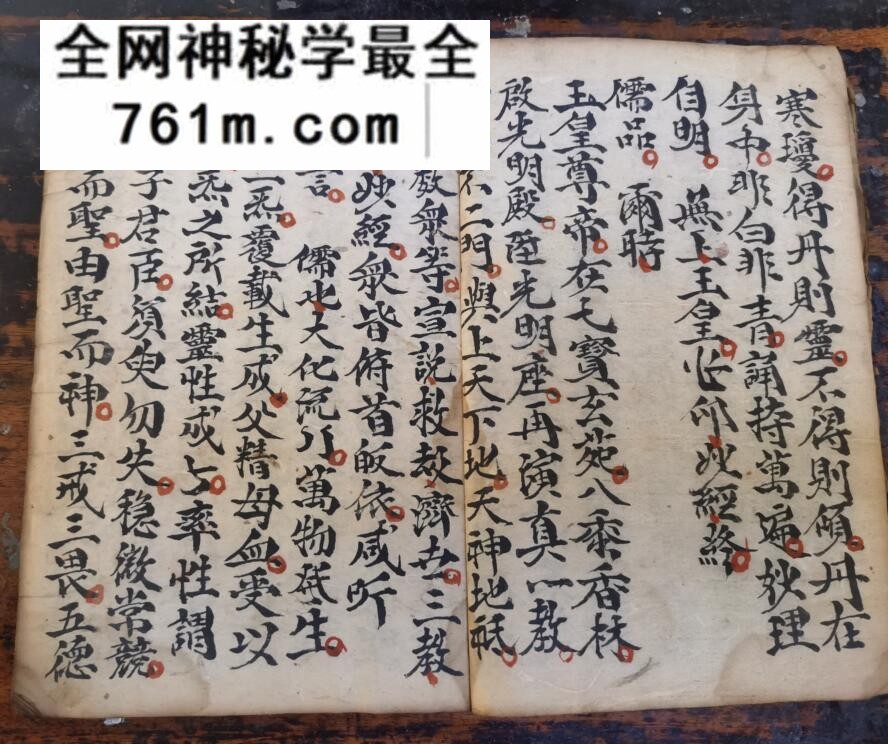 全网神秘学最全
761m.com
寒瓊得丹則靈不得則傾丹在
身中非白非青誦持萬遍妙理
自明 無上玉皇心印妙經終
儒品 爾時
玉皇尊帝在七寶玄苑八黍香林
啟光明殿陞光明座再演真一教
不二門與上天下地天神地祇
教眾等宣說救劫濟世三教
妙經眾皆俯首皈依咸听
言 儒此大化流行萬物萌生
一炁覆載生成父精母血受以
炁之所結靈性成与率性謂
子君臣須臾勿失稳微常競
而聖由聖而神三戒三畏五德